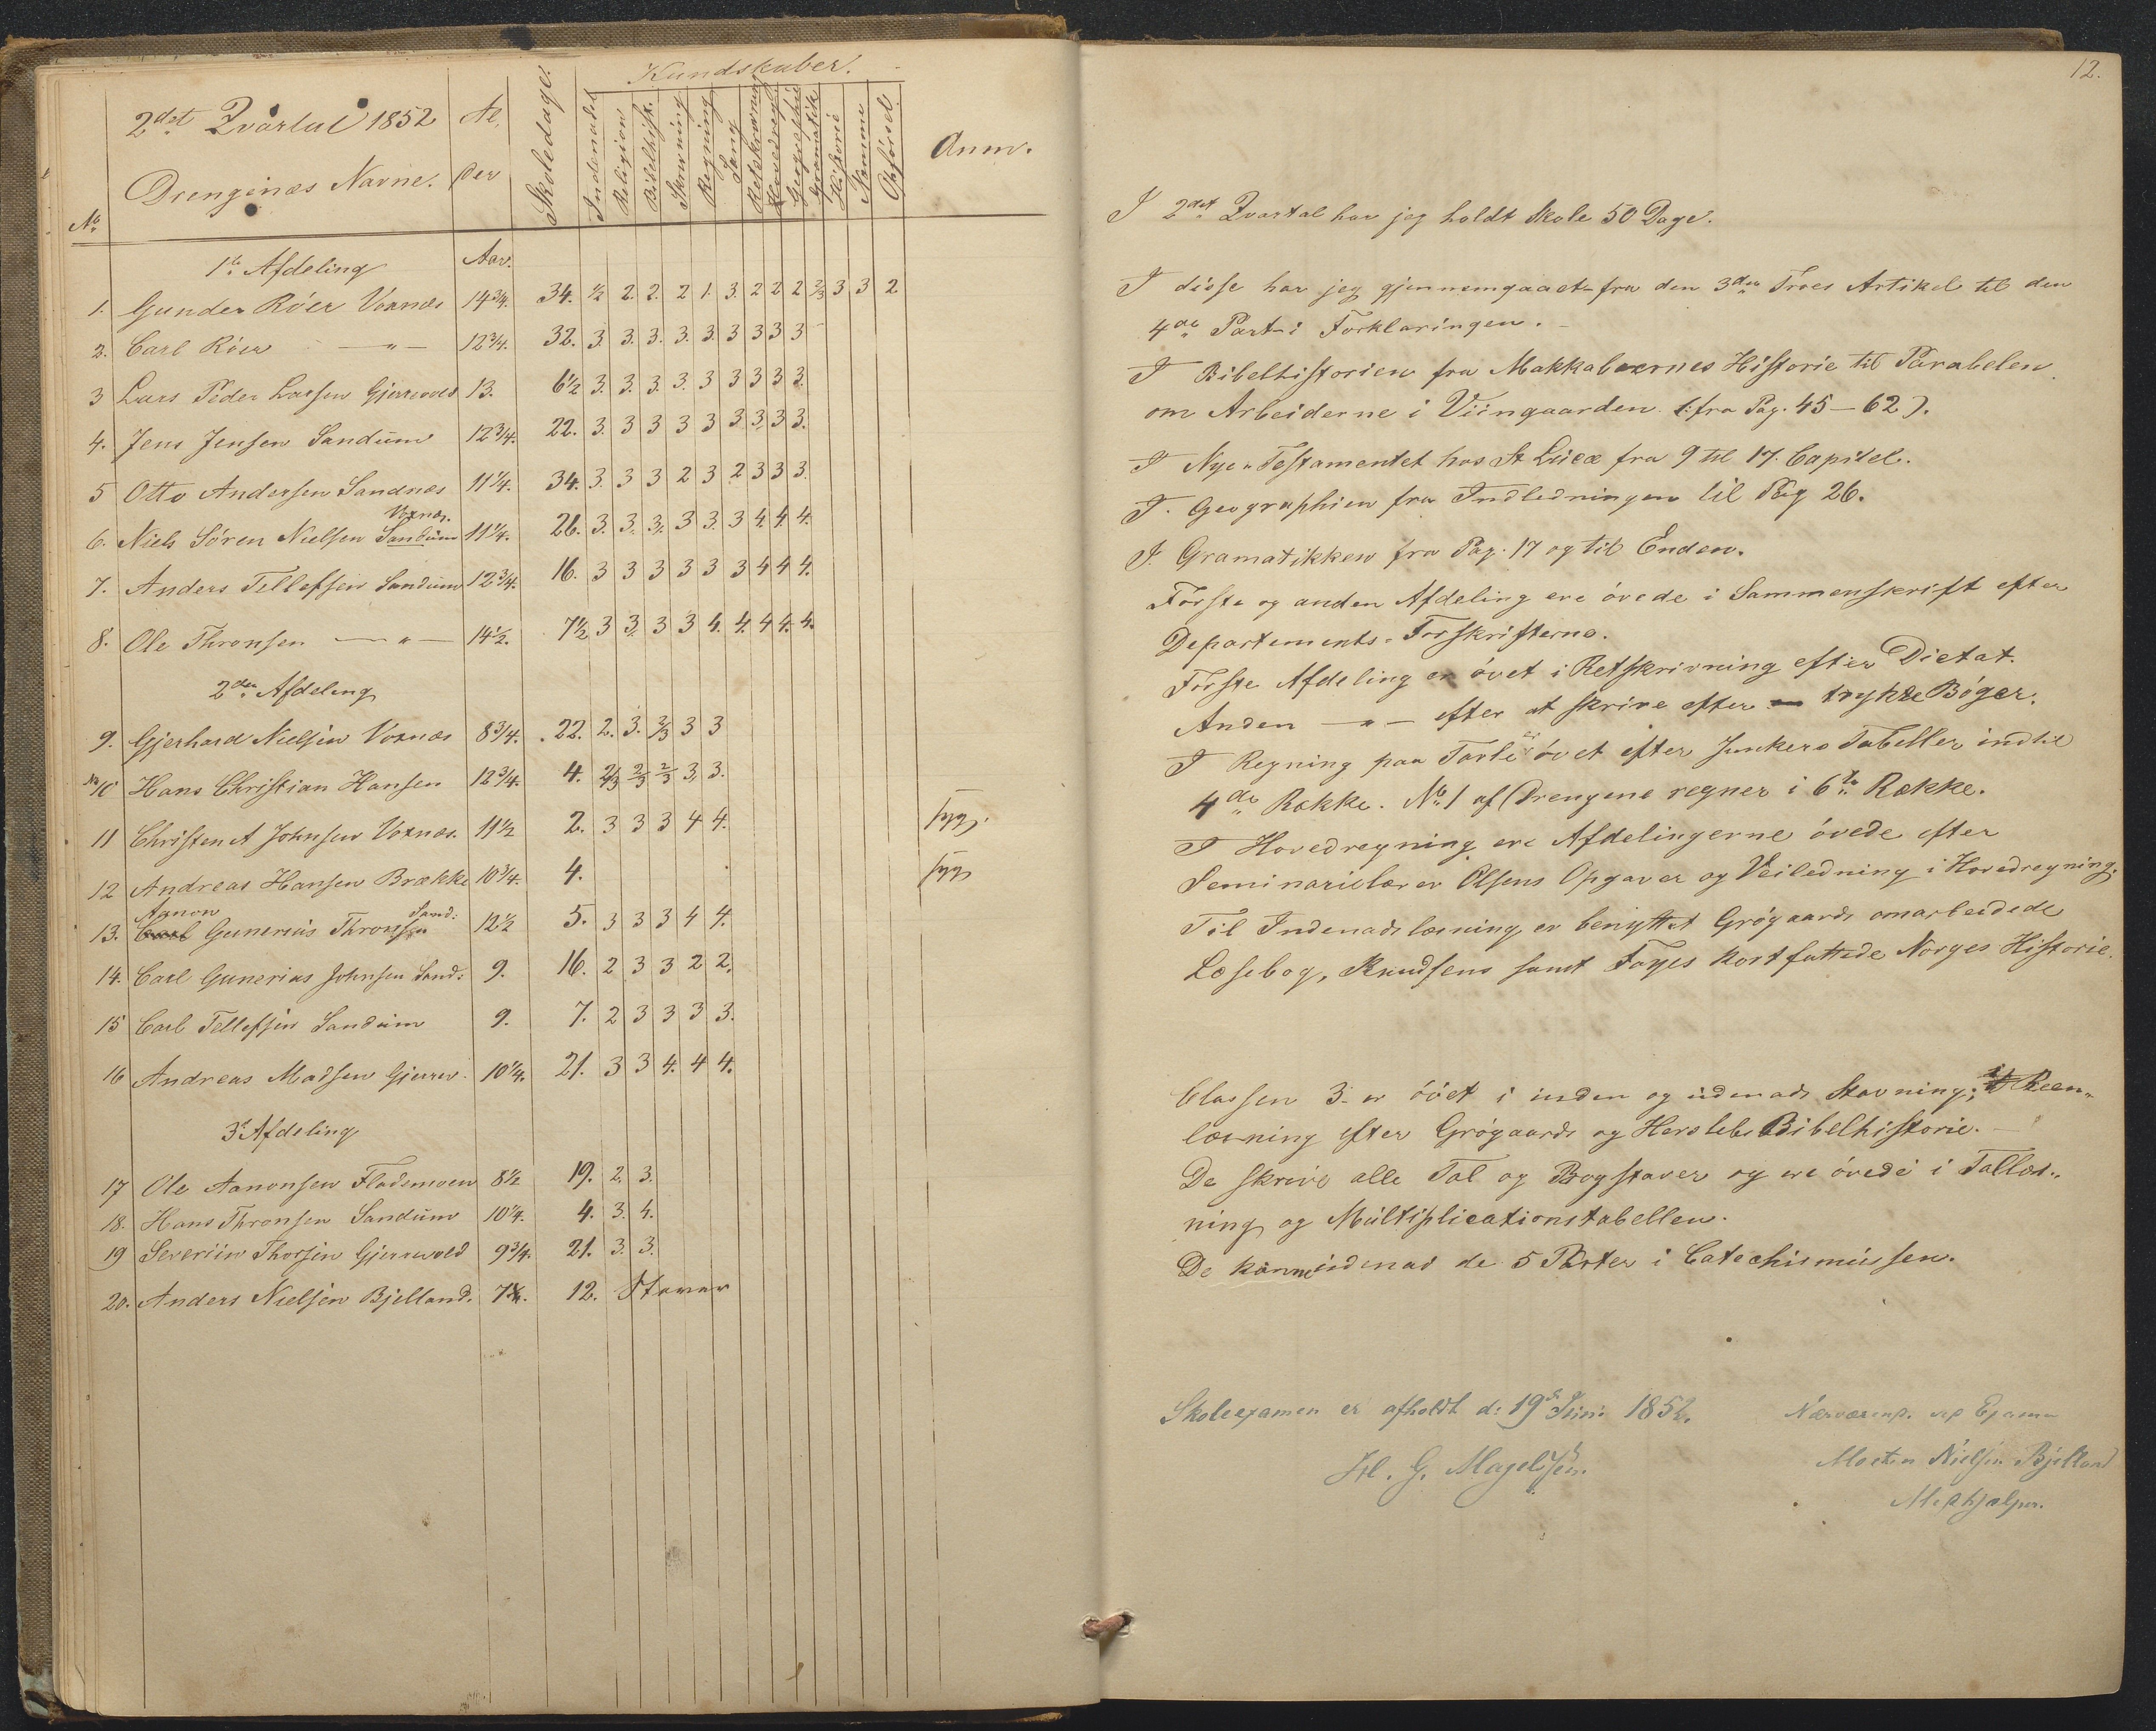 Kundskaber.
2det Qvartal 1852 Al- Skoledage. Indenadl. Religion Bibelhist. Skrivning Regning Sang Retskrivning Hovedregn. Geographie Gramatik Historie Nemme Opførsel Anm.
No Drengenes Navne. der
1te Afdeling Aar.
1. Gunder Röer Voxnæs 14 3/4. 34. 1/2 2. 2. 2 1. 3. 2 2 2 2/3 3 3 2
2. Carl Röer — " — 12 3/4. 32. 3. 3. 3. 3. 3. 3 3 3 3
3 Lars Peder Larsen Gjerrvold 13. 6 1/2 3. 3. 3. 3. 3 3 3 3 3.
4. Jens Jensen Sandum 12 3/4. 22. 3. 3 3 3 3 3. 3. 3 3.
5 Otto Andersen Sandnæs 11 1/4. 34. 3. 3 3 2 3 2 3 3 3.
Voxnæs.
6. Niels Sören Nielsen Sandum 11 1/4. 26. 3. 3. 3. 3 3. 3 4. 4. 4.
7. Anders Tellefsen Sandum 12 3/4. 16. 3 3 3 3 3 3 4 4 4.
8. Ole Thronsen — " — 14 1/2. 7 1/2 3 3. 3 3 4. 4. 4 4. 4.
2den Afdeling
9. Gjerhard Nielsen Voxnæs 8 3/4. 22. 2. 3. 2/3 3 3
No 10 Hans Christian Hansen 12 3/4. 4. 2/3 2/3 2/3 3. 3.
11 Christen A Johnsen Voxnæs. 11 1/2 2. 3 3 3 4 4. syg.
12 Andreas Hansen Brække 10 3/4. 4. syg
Aanon Sand:
13. Carl Gunerius Thronsen 12 1/2 5. 3 3 3 4 4.
14. Carl Gunerius Johnsen Sand: 9. 16. 2 3 3 2 2.
15 Carl Tellefsen Sandum 9. 7. 2 3 3 3 3.
16 Andreas Madsen Gjerrv. 10 1/4. 21. 3 3 4. 4 4.
3e Afdeling
17 Ole Aanonsen Flademoen 8 1/2 19. 2. 3.
18. Hans Thronsen Sandum 10 1/4. 4. 3. 4.
19 Severiin Thorsen Gjerrvold 9 3/4. 21. 3. 3.
20. Anders Nielsen Bjelland. 12. Staver
12.
I 2det Qvartal har jeg holdt Skole 50 Dage.
I disse har jeg gjennemgaaet fra den 3die Troes Artikel til den
4de Part i Forklaringen.
I Bibelhistorien fra Makkabæernes Historie til Parabelen
om Arbeiderne i Viingaarden (: fra Pag. 45 — 62).
I Nye Testamentet hos St Lucæ fra 9 til 17. Capitel.
I. Geographien fra Indledningen til Pag 26.
I. Gramatikken fra Pag. 17 og til Enden.
Förste og anden Afdeling ere övede i Sammenskrift efter
Departements-Forskrifterne.
Förste Afdeling er övet i Retskrivning efter Dictat.
Anden — " — efter at skrive efter trykte Böger.
I Regning paa Tavle er övet efter Junkers Tabeller indtil
4de Række. No 1 af Drengene regner i 6te Række.
I Hovedregning ere Afdelingerne övede efter
Seminarielærer Olsens Opgaver og Veiledning i Hovedregning.
Til Indenadslæsning er benyttet Grögaards omarbeidede
Læsebog, Knudsens samt Fayes kortfattede Norges Historie.
Classen 3. er övet i inden og udenads Stavning; i Reen-
læsning efter Grögaards og Herslebs Bibelhistorie. —
De skrive alle Tal og Bogstaver og ere övede i Tallæs-
ning og Multiplicationstabellen.
De kunne udenad de 5 Parter i Catechismussen.
Skoleexamen er afholdt d: 19de Juni 1852. Nærværend. ved Examen
H. G. Magelssen. Morten Nielsen Bjelland
Medhjælper.